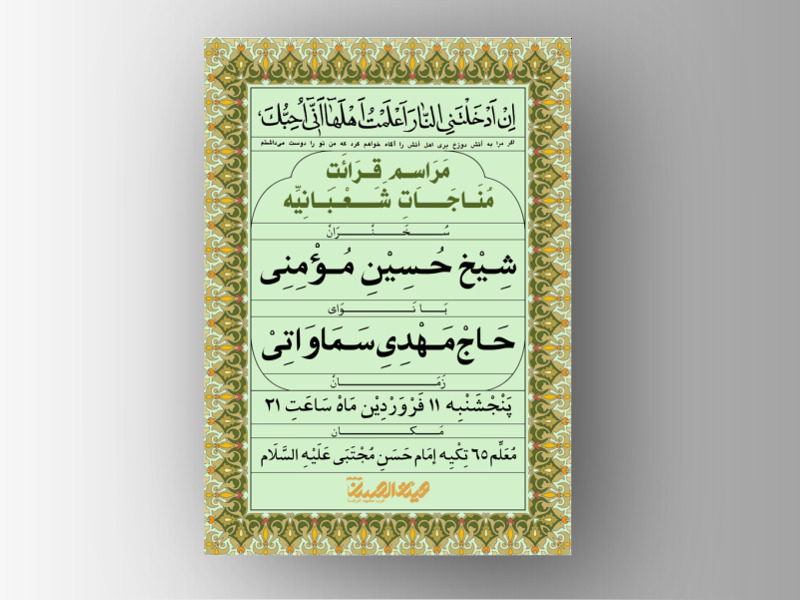 اِنْ اَدْخَلْتَنِی النّارَ اَعْلَمْتُ اَهْلَهٰا اَنّی اُحِبُّکَ
اگر مرا به آتش دوزخ بری اهل آتش را آگاه خواهم کرد که من تو را دوست می‌داشتم
مَرَاسِم قِرَائَت
مُنَاجَاتِ شَعْبَانِیِّه
سُخَنْرَانْ
شِیْخ حُسِیْنِ مُؤْمِنِی
بَا نَوَای
حَاجْ مَهْدِیِ سَمَاوَاتِیْ
زَمَانْ
پَنْجْشَنْبِه ۱۱ فَرْوَرْدِیْن مَاهْ سَاعَتِ ۲۱
مَکَانْ
مُعَلِّم ۶۵ تِکْیِه اِمَام حَسَنِ مُجْتَبَی عَلَیْهِ السَّلَام